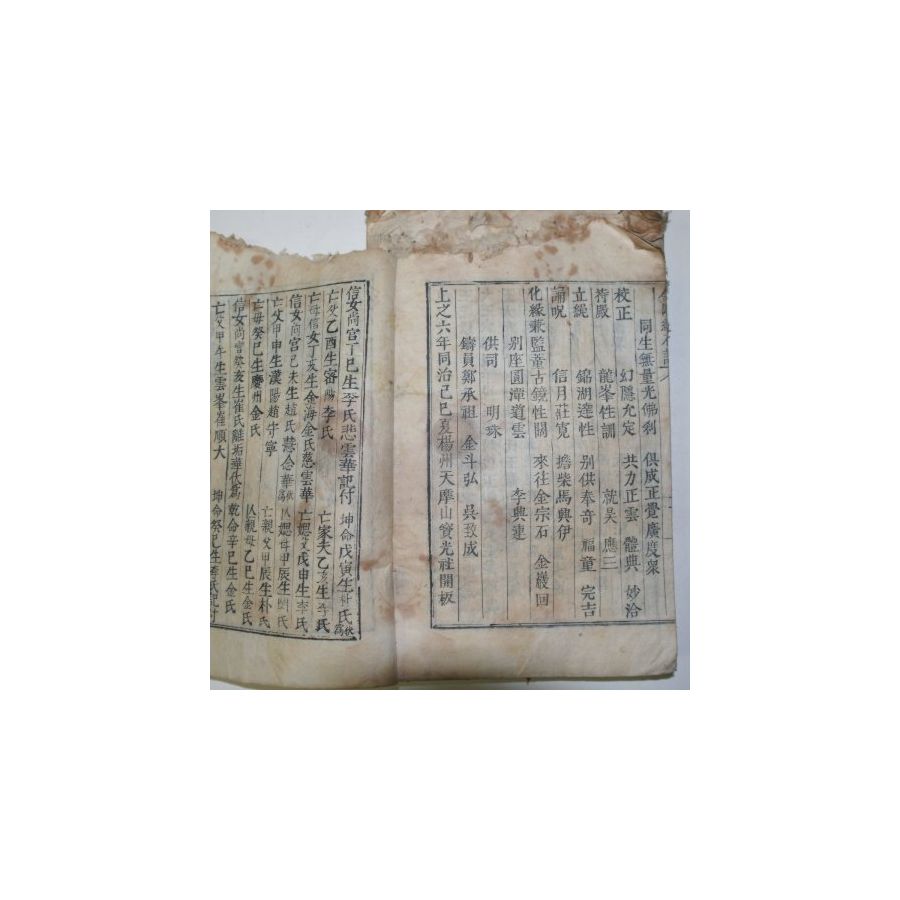 同生無量光佛刹 俱成正覺廣度衆
校正 幻隱允定 共力正雲 體典 妙洽
持殿 龍峯性調 就昊 應三
立繩 錦湖達性 別供奉奇 福童 完吉
誦呪 信月莊寬 擔柴馬興伊
化緣兼監董古鏡性闊 來往金宗石 金巖回
別座圓潭道雲 李興連
供司 明珠
鑄員鄭承祖 金斗弘 吳致成
上之六年同治己巳夏楊州天摩山寶光社開板
信女尚宮丁巳生李氏悲雲華記付 坤命戊寅生朴氏伏爲
亡父乙酉生審陽李氏 亡家夫乙亥生李氏
亡母信女丁亥生金海金氏慈雲華 亡媤父戊申生李氏
信女尚宮己未生趙氏慧念華伏爲 亡媤母甲辰生氏
亡父甲申生漢陽趙守寧 亡親父甲辰生朴氏
亡母癸巳生慶州金氏 亡親母乙巳生金氏
信女尚宮癸亥生崔氏離垢華伏爲 乾命辛巳生金氏
亡父甲午生雲峯崔順大 坤命癸巳生李氏記付